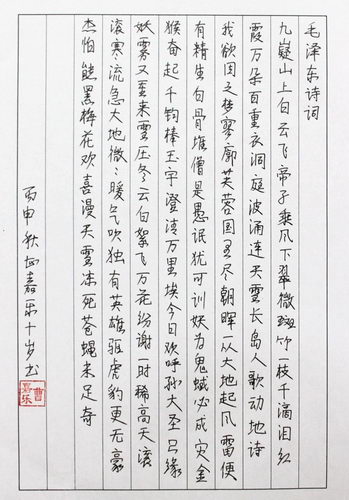 毛泽东诗词
九嶷山上白云飞帝子乘风下翠微斑竹一枝千滴泪红
霞万朵百重衣洞庭波涌连天雪长岛人歌动地诗
我欲因之梦寥廓芙蓉国里尽朝晖一从大地起风雷便
有精生白骨堆僧是愚氓犹可训妖为鬼蜮必成灾金
猴奋起千钧棒玉宇澄清万里埃今日欢呼孙大圣只缘
妖雾又重来雪压冬云白絮飞万花纷谢一时稀高天滚
滚寒流急大地微〻暖气吹独有英雄驱虎豹更无豪
杰怕熊罴梅花欢喜漫天雪冻死苍蝇未足奇
丙申秋曹嘉乐十岁书
曹嘉乐